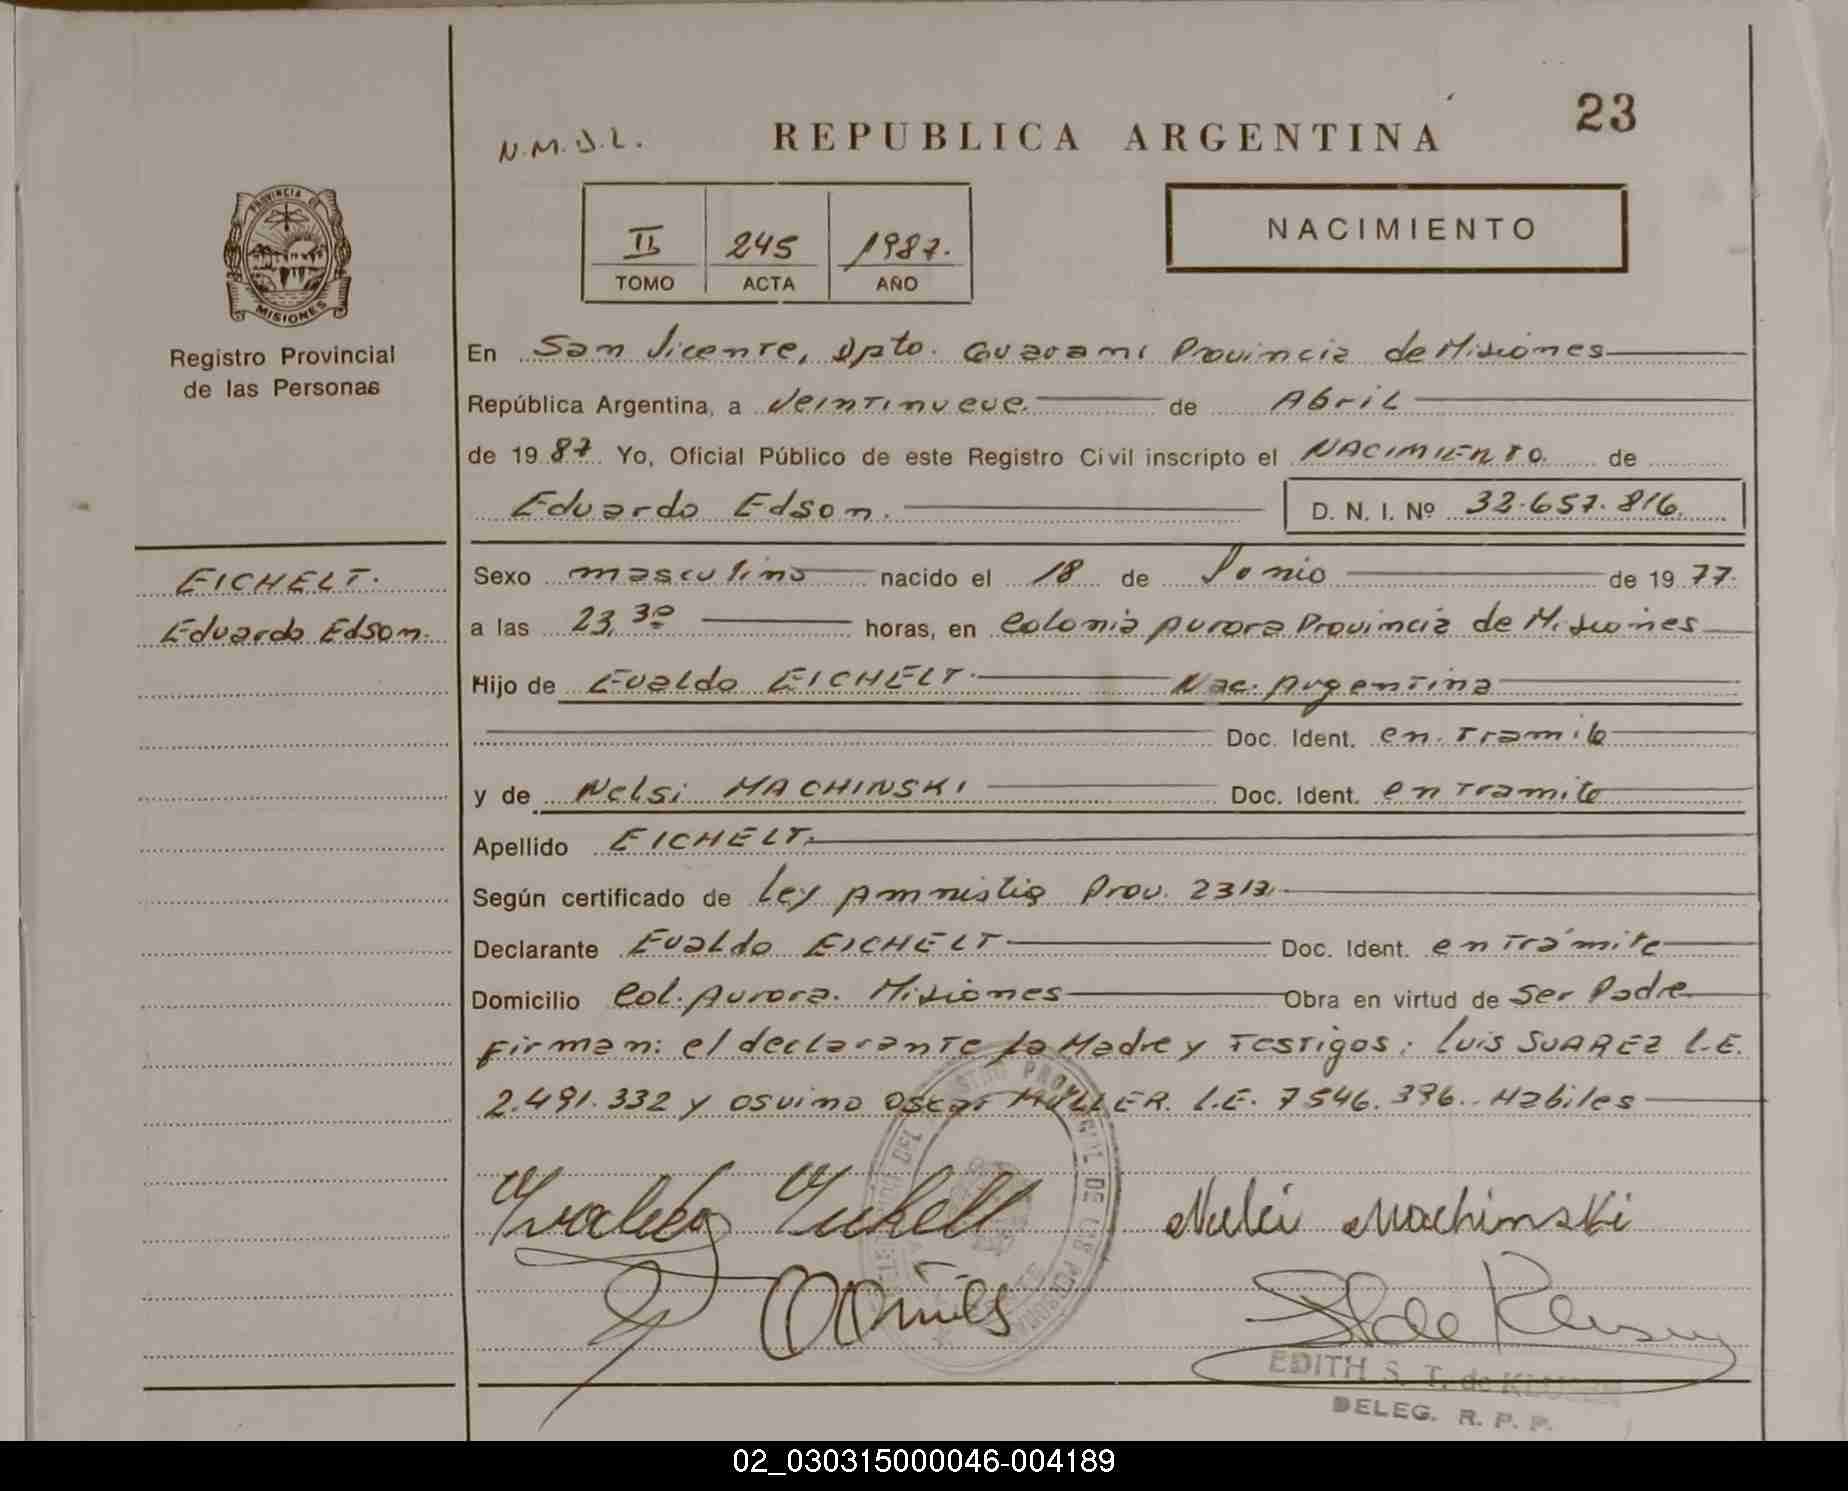 23
N.M.J.L.
REPUBLICA ARGENTINA
PROVINCIA DE
MISIONES
Registro Provincial
de las Personas
II 245 1987.
TOMO ACTA AÑO
NACIMIENTO
En San Vicente, Dpto. Guarani Provincia de Misiones
República Argentina, a Veintinueve de Abril
de 1987 Yo, Oficial Público de este Registro Civil inscripto el NACIMIENTO de
Eduardo Edson.
D. N. I. Nº 32.657.816.
EICHELT.
Eduardo Edson.
Sexo masculino nacido el 18 de Junio de 1977.
a las 23,30 horas, en Colonia Aurora Provincia de Misiones
Hijo de Evaldo EICHELT. Nac. Argentina
Doc. Ident. en tramite
y de Nelsi MACHINSKI Doc. Ident. en tramite
Apellido EICHELT.
Según certificado de Ley Amnistia Prov. 2313
Declarante Evaldo EICHELT Doc. Ident. en trámite
Domicilio Col. Aurora. Misiones Obra en virtud de ser Padre
Firman: el declarante la Madre y Testigos: Luis SUAREZ L.E.
2.491.332 y Osvino Oscar MULLER. L.E. 7546.396. Habiles
Machinski
EDITH S. T. de
DELEG. R. P. P.
02_030315000046-004189